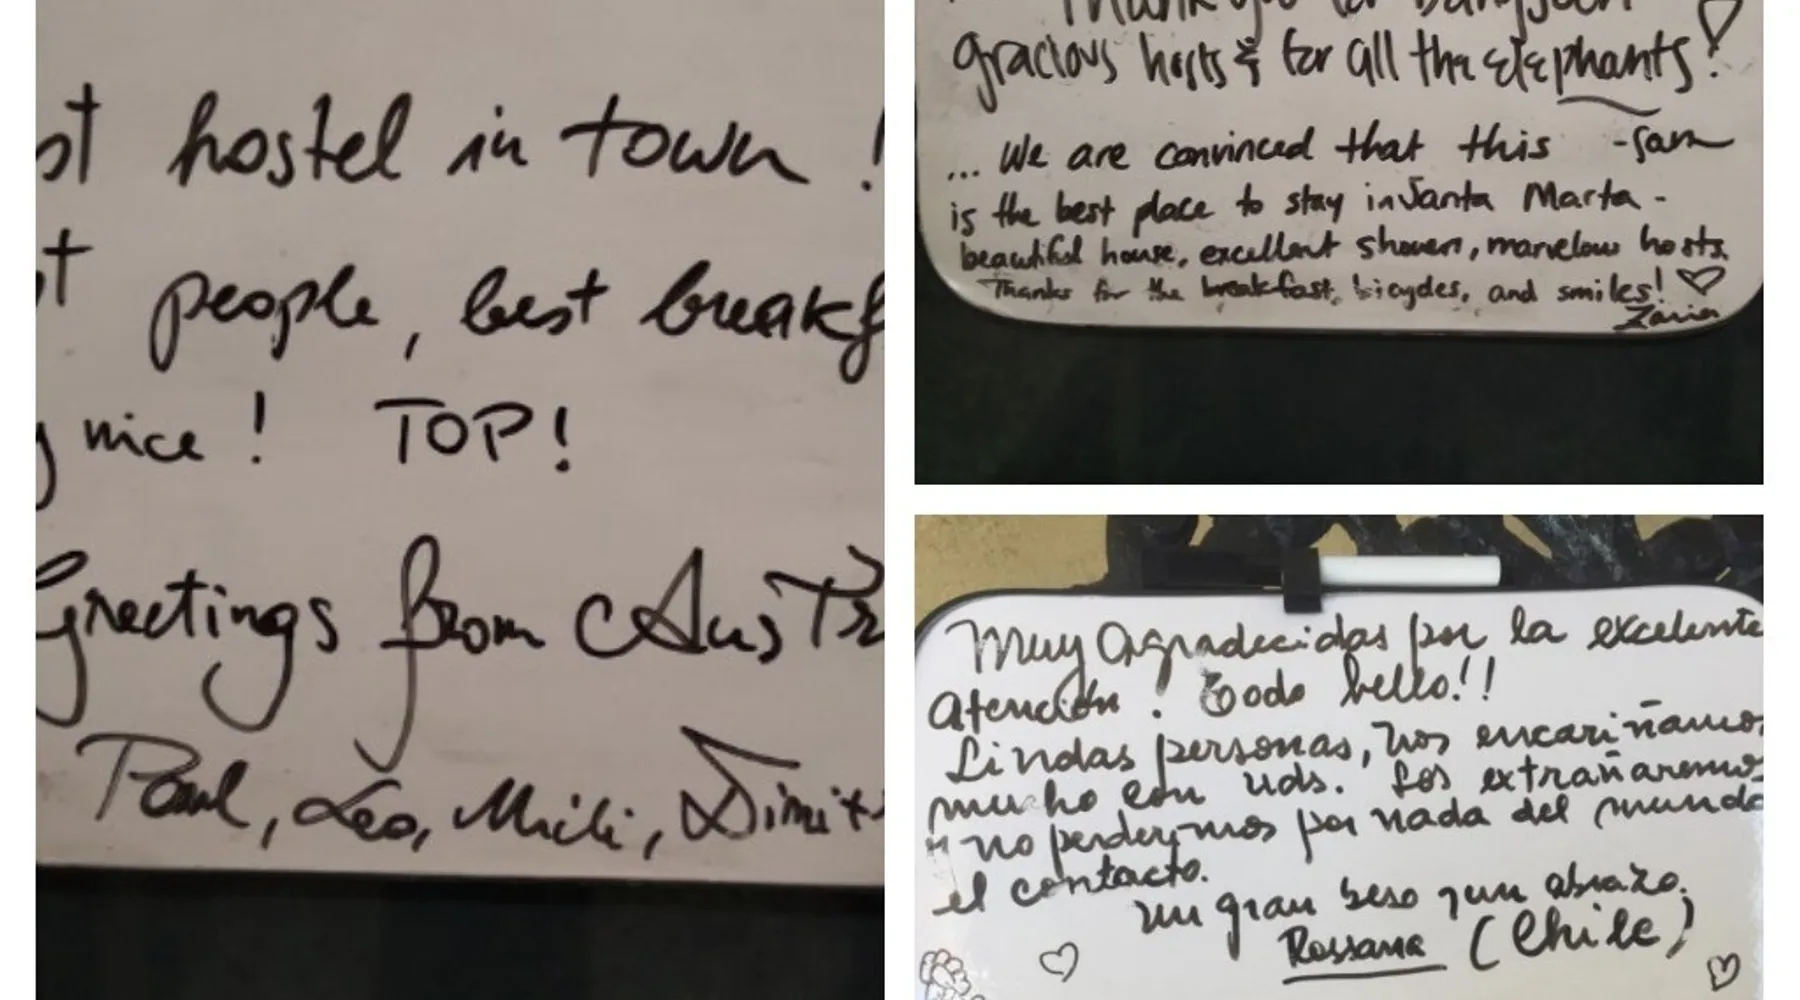 st hostel in town !
st people, best breakf
y nice ! TOP!
Greetings from Austr
Paul, Leo, Mili, Dimitr
Thank you for being such
gracious hosts & for all the elephants!
... We are convinced that this -Sam
is the best place to stay in Santa Marta -
beautiful house, excellent showers, marvelous hosts.
Thanks for the breakfast, bicycles, and smiles!
Muy Agradecidas por la excelente
atención! Todo bello!!
Lindas personas, nos encariñamos
mucho con uds. Los extrañaremos
y no perderemos por nada del mundo
el contacto.
un gran beso y un abrazo.
Rossana (Chile)